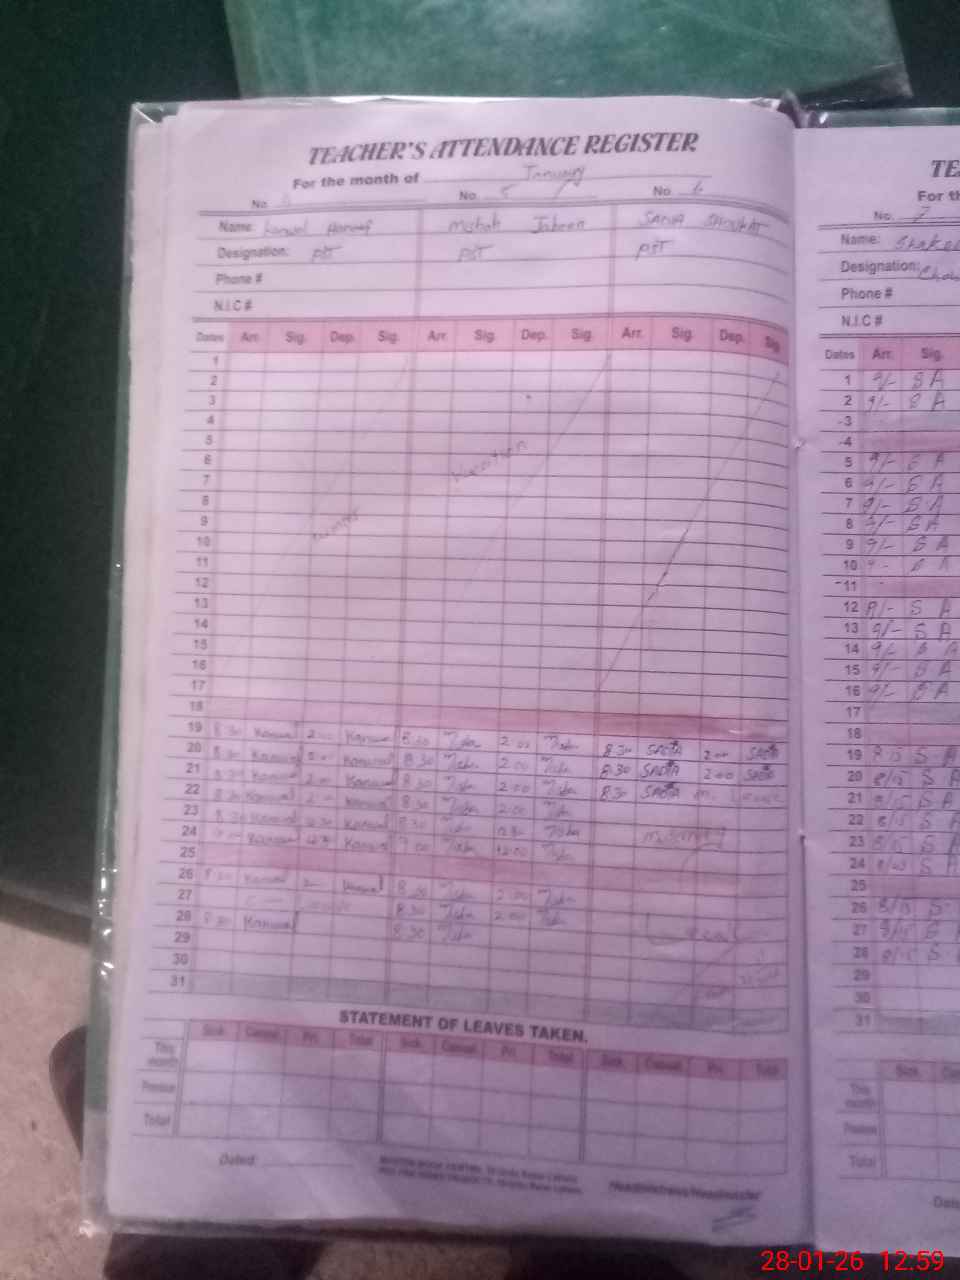 TEACHER'S ATTENDANCE REGISTER
For the month of January
No. No. 5 No. 6
Name: Kanwal Haneef Misbah Jabeen SADIA SHOUKAT
Designation: PST PST PST
Phone #
N.I.C #
Dates Arr. Sig. Dep. Sig. Arr. Sig. Dep. Sig. Arr. Sig. Dep. Sig.
1
2
3
4
5
6
7
8
9
10
11
12
13
14
15
16
17
18
winter vacation
19 8:30 Kanwal 2:00 Kanwal 8:30 Misba 2:00 Misba 8:30 SADIA 2:00 SADIA
20 8:30 Kanwal 2:00 Kanwal 8:30 Misba 2:00 Misba 8:30 SADIA 2:00 SADIA
21 8:30 Kanwal 2:00 Kanwal 8:30 Misba 2:00 Misba 8:30 SADIA Leave
22 8:30 Kanwal 2:00 Kanwal 8:30 Misba 2:00 Misba
23 8:30 Kanwal 12:30 Kanwal 8:30 Misba 12:30 Misba
24 Kanwal Kanwal 9:00 Misba 12:00 Misba
25
26 8:30 Kanwal 2:00 Kanwal 8:30 Misba 2:00 Misba
27 Leave 8:30 Misba 2:00 Misba
28 8:30 Kanwal 8:30 Misba
Leave
29
30
31
STATEMENT OF LEAVES TAKEN.
Sick Casual Pri. Total Sick Casual Pri. Total Sick Casual Pri. Total
This month
Previous
Total
Dated:
Headmistress/Headmaster
TE
For th
No. 7
Name: Shakee
Designation: Cho
Phone #
N.I.C #
Dates Arr. Sig.
1 9/- S A
2 9/- S A
3
4
5 9/- S A
6 9/- S A
7 9/- S A
8 9/- S A
9 9/- S A
10 9/- S A
11
12 9/- S A
13 9/- S A
14 9/- S A
15 9/- S A
16 9/- S A
17
18
19 8/15 S A
20 8/15 S A
21 8/15 S A
22 8/15 S A
23 8/15 S A
24 8/15 S A
25
26 8/15 S
27 8/15 S A
28 8/15 S
29
30
31
Sick
This month
Previous
Total
28-01-26 12:59